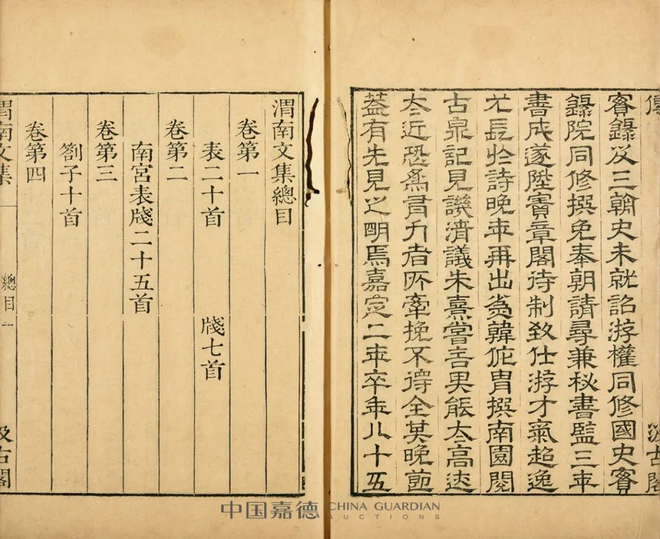 傳 汲古閣
實錄及三朝史未就詔游權同修國史實
錄院同修撰免奉朝請尋兼秘書監三年
書成遂陞寶章閣待制致仕游才氣超逸
尤長於詩晚年再出為韓侂胄撰南園閱
古泉記見譏清議朱熹嘗言其能太高迹
太近恐為有力者所牽挽不得全其晚節
蓋有先見之明焉嘉定二年卒年八十五
渭南文集總目
卷第一
表二十首 牋七首
卷第二
南宮表牋二十五首
卷第三
劄子十首
卷第四
渭南文集 總目一 汲古閣
中国嘉德 CHINA GUARDIAN
AUCTIONS